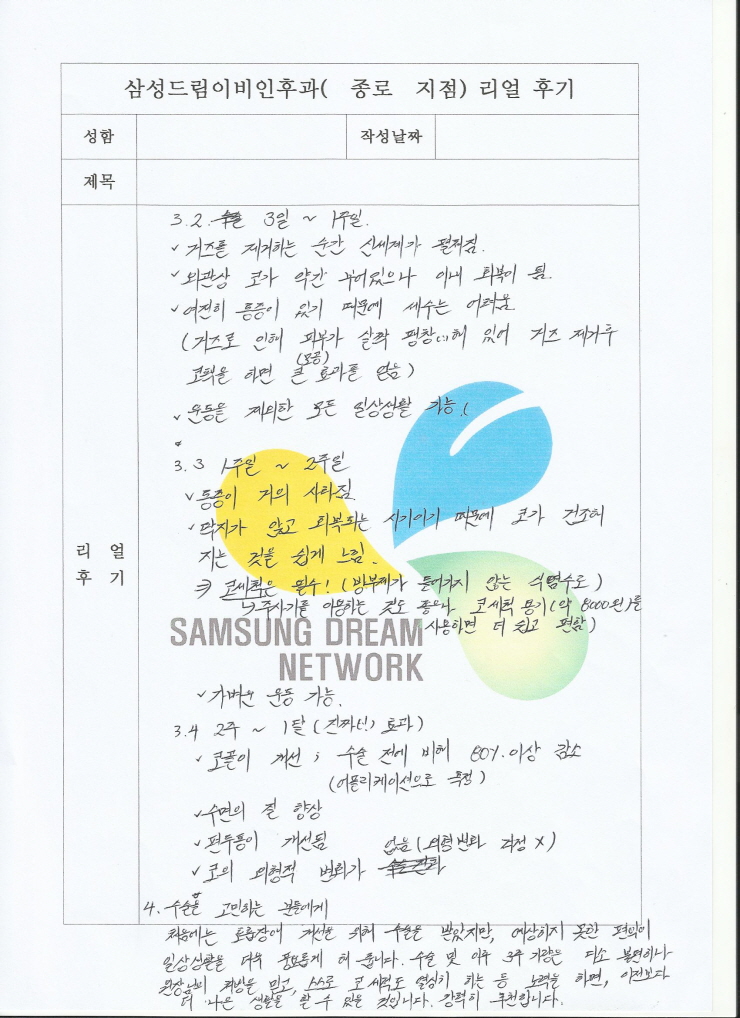 삼성드림이비인후과( 종로 지점) 리얼 후기
성함 작성날짜
제목
리 얼
후 기
3.2. 3일 ~ 1주일.
✓ 거즈를 제거하는 순간 신세계가 펼쳐짐.
✓ 외관상 코가 약간 부어있으나 이내 회복이 됨.
✓ 여전히 통증이 있기 때문에 세수는 어려움.
(거즈로 인해 피부가 살짝 팽창 해 있어 거즈 제거후
(모공)
코팩을 하면 큰 효과를 얻음)
✓ 운동을 제외한 모든 일상생활 가능.
3.3 1주일 ~ 2주일
✓ 통증이 거의 사라짐.
✓ 딱지가 앉고 회복되는 시기이기 때문에 코가 건조해
지는 것을 쉽게 느낌.
코세척은 필수! (방부제가 들어가지 않는 식염수로)
↳ 주사기를 이용하는 것도 좋으나 코세척 용기(약 8000원)를
사용하면 더 쉽고 편함)
SAMSUNG DREAM
NETWORK
✓ 가벼운 운동 가능.
3.4 2주 ~ 1달 (진짜 효과)
✓ 코골이 개선 ; 수술 전에 비해 80% 이상 감소
(어플리케이션으로 측정)
✓ 수면의 질 향상
✓ 편두통이 개선됨
✓ 코의 외형적 변화가 없음 (외형변화 걱정 X)
4. 수술을 고민하는 분들에게
처음에는 호흡장애 개선을 위해 수술을 받았지만, 예상하지 못한 편익이
일상생활을 더욱 풍요롭게 해 줍니다. 수술 및 이후 3주 가량은 다소 불편하나
원장님의 처방을 믿고, 스스로 코 세척도 열심히 하는 등 노력을 하면, 이전보다
더 나은 생활을 할 수 있을 것입니다. 강력히 추천합니다.